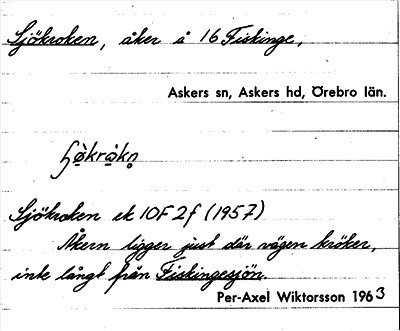 Sjökroken, åker å 16 Fiskinge,
Askers sn, Askers hd, Örebro län.
Sjökroken ek 10F 2f (1957)
Åkern ligger just där vägen kröker,
inte långt från Fiskingesjön.
Per-Axel Wiktorsson 1963